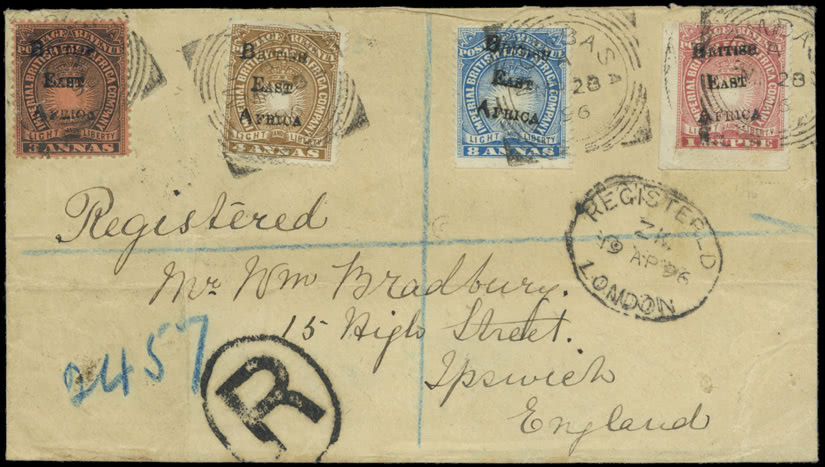 POSTAGE & REVENUE
IMPERIAL BRITISH EAST AFRICA COMPANY
BRITISH
EAST
AFRICA
LIGHT AND LIBERTY
ANNAS
POSTAGE & REVENUE
IMPERIAL BRITISH EAST AFRICA COMPANY
BRITISH
EAST
AFRICA
LIGHT AND LIBERTY
ANNAS
POSTAGE & REVENUE
IMPERIAL BRITISH EAST AFRICA COMPANY
BRITISH
EAST
AFRICA
LIGHT AND LIBERTY
8 ANNAS
BASA
28
96
POSTAGE & REVENUE
IMPERIAL BRITISH EAST AFRICA COMPANY
BRITISH
EAST
AFRICA
LIGHT AND LIBERTY
1 RUPEE
MBASA
28
Registered
REGISTERED
19 AP 96
LONDON
Mr Wm Bradbury.
15 High Street.
Ipswich
England
2457
R